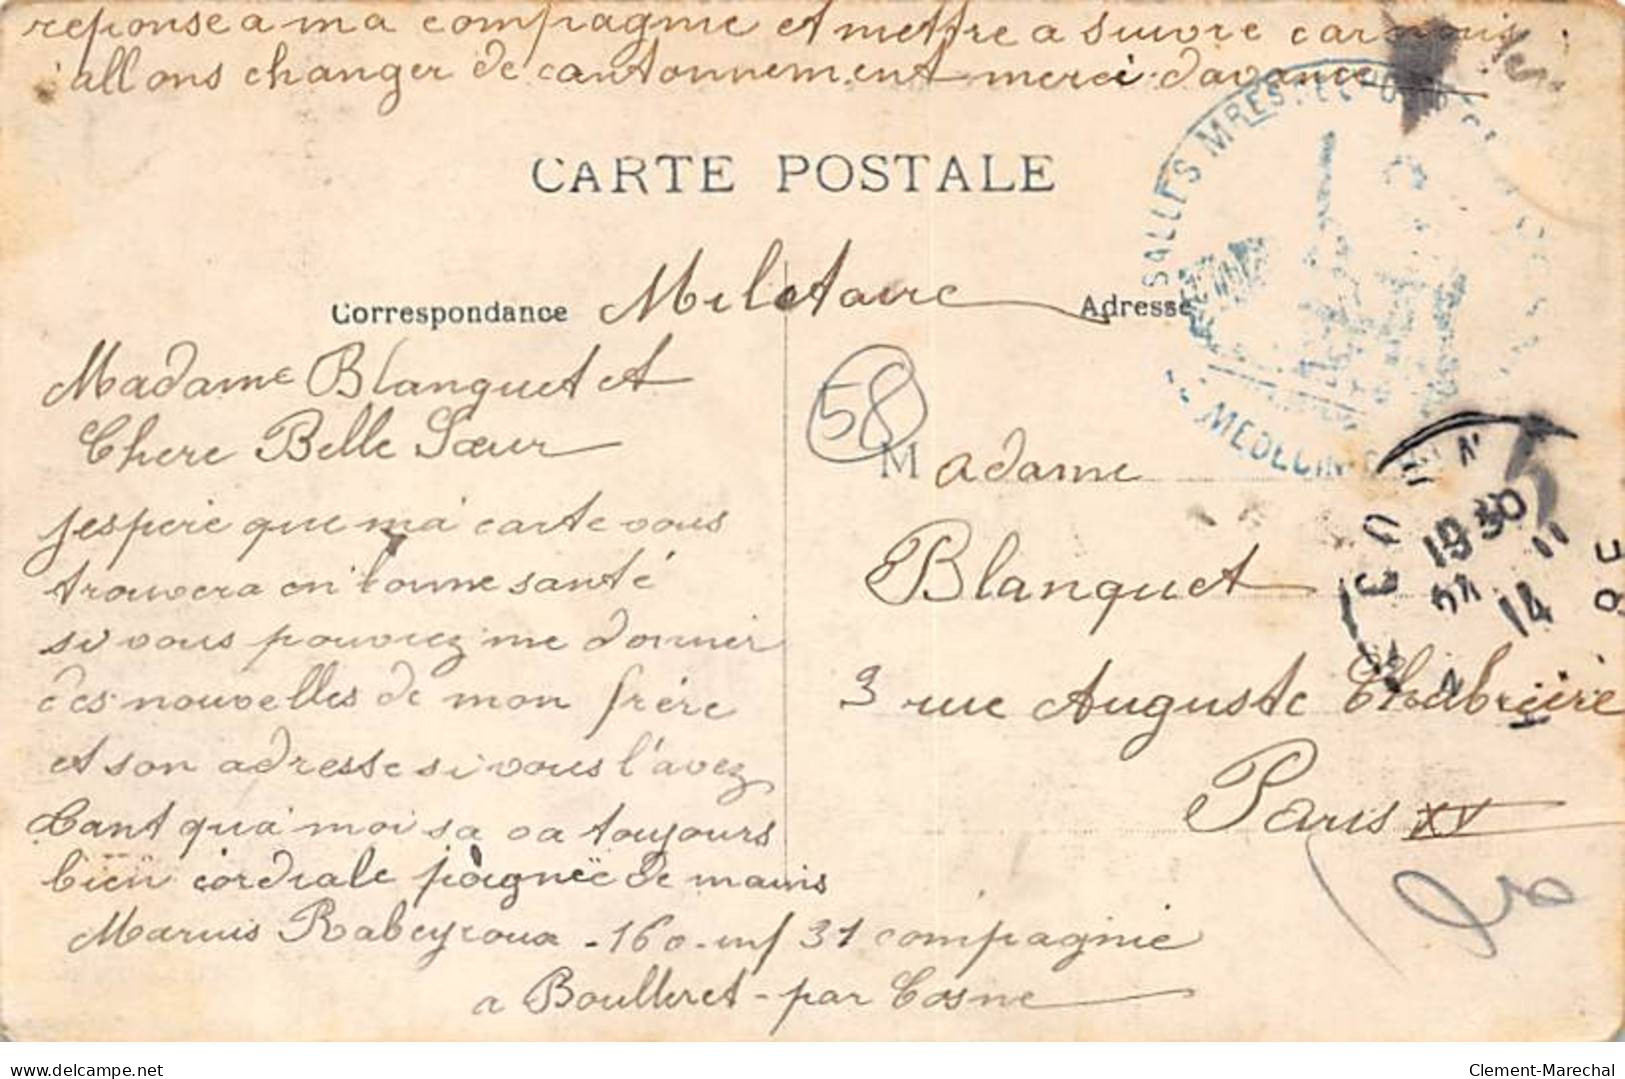 reponse a ma compagnie et mettre a suivre car nous
allons changer de cantonnement merci d'avance
CARTE POSTALE
Correspondance Militaire Adresse
SALLES MRES
MEDECIN
Madame Blanquet et
Chere Belle Sœur
jespere que ma carte vous
trouvera en bonne santé
si vous pouviez me donner
des nouvelles de mon frére
et son adresse si vous l'avez
tant qua moi sa va toujours
bien cordiale poignée de mains
Marius Rabeyroux - 160 - inf 31 compagnie
a Boulleret - par Cosne
58
Madame
Blanquet
3 rue Auguste Chabrière
Paris XV
19 30
11
14
delcampe.net
Clement-Marechal